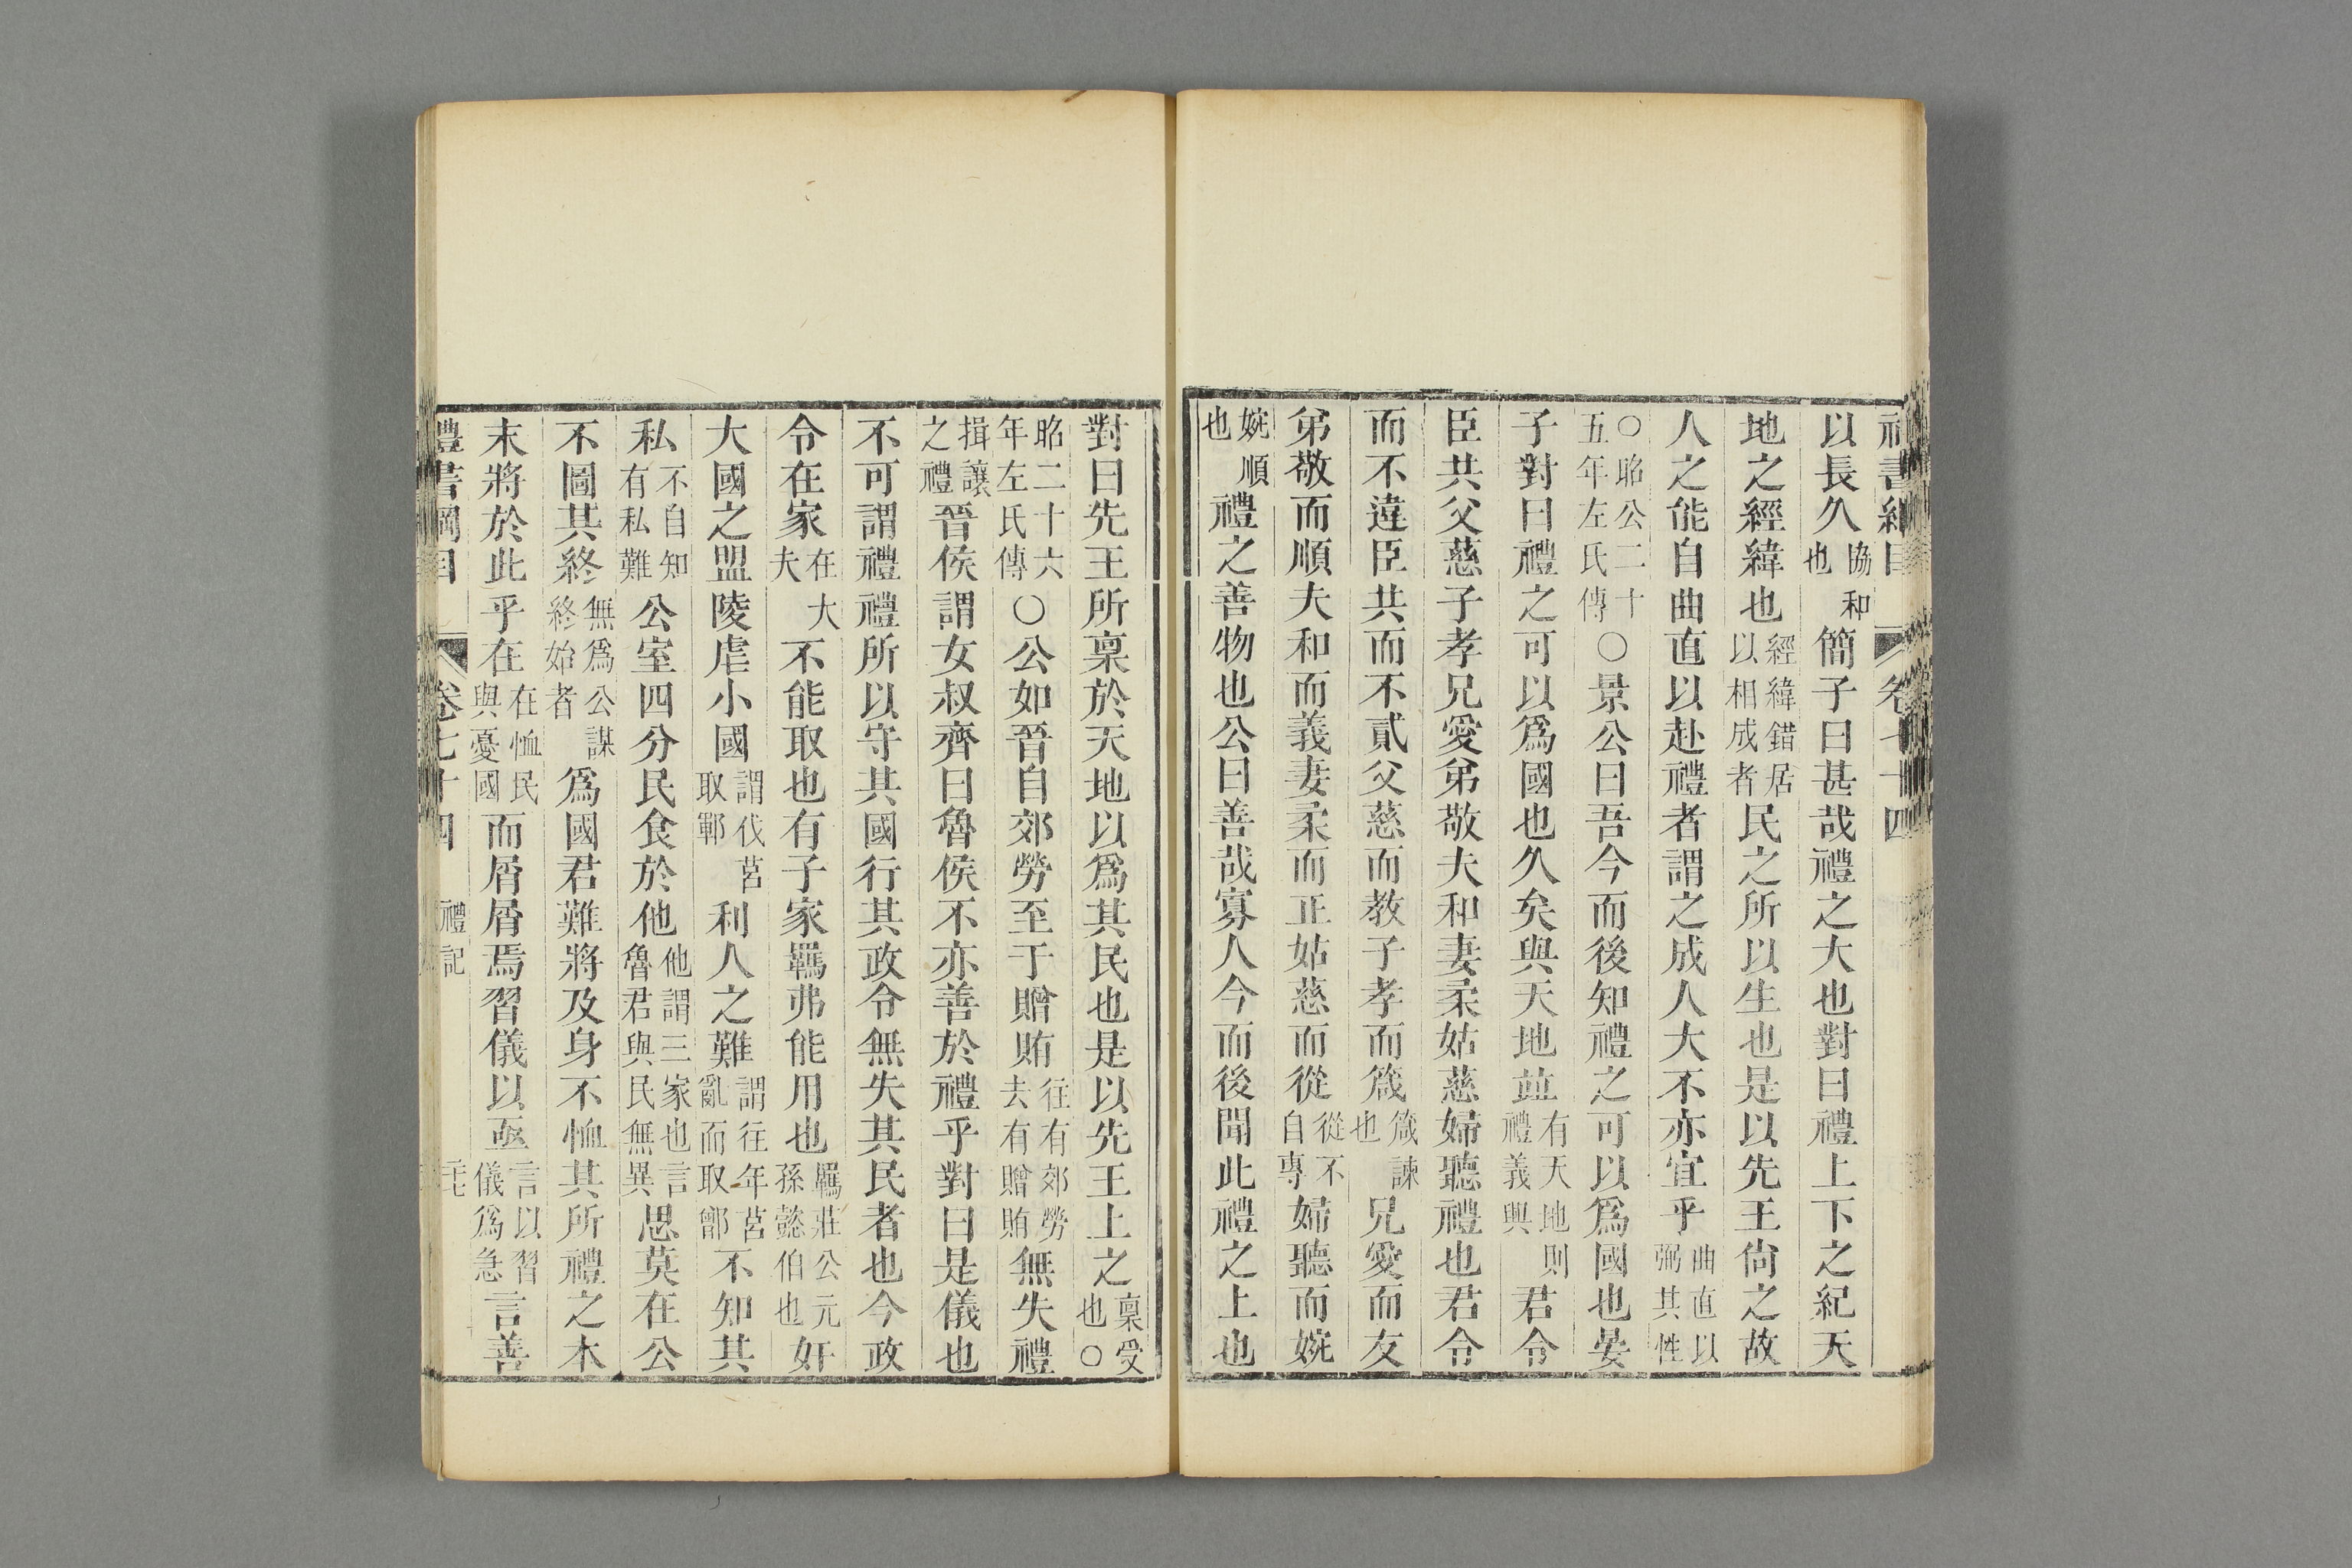 禮書綱目 卷七十四
以長久協和也簡子曰甚哉禮之大也對曰禮上下之紀天
地之經緯也經緯錯居以相成者民之所以生也是以先王尙之故
人之能自曲直以赴禮者謂之成人大不亦宜乎曲直以弼其性
○昭公二十五年左氏傳○景公曰吾今而後知禮之可以爲國也晏
子對曰禮之可以爲國也久矣與天地並有天地則禮義興君令
臣共父慈子孝兄愛弟敬夫和妻柔姑慈婦聽禮也君令
而不違臣共而不貳父慈而教子孝而箴箴諫也兄愛而友
弟敬而順夫和而義妻柔而正姑慈而從從不自專婦聽而婉
婉順也禮之善物也公曰善哉寡人今而後聞此禮之上也
對曰先王所稟於天地以爲其民也是以先王上之稟受也○
昭二十六年左氏傳○公如晉自郊勞至于贈賄往有郊勞去有贈賄無失禮
揖讓之禮晉侯謂女叔齊曰魯侯不亦善於禮乎對曰是儀也
不可謂禮禮所以守其國行其政令無失其民者也今政
令在家在大夫不能取也有子家羈弗能用也羈莊公元孫懿伯也奸
大國之盟陵虐小國謂伐莒取鄆利人之難謂往年莒亂而取鄫不知其
私不自知有私難公室四分民食於他他謂三家也言魯君與民無異思莫在公
不圖其終無爲公謀終始者爲國君難將及身不恤其所禮之本
末將於此乎在在恤民與憂國而屑屑焉習儀以亟言以習儀爲急言善
禮書綱目 卷七十四 禮記